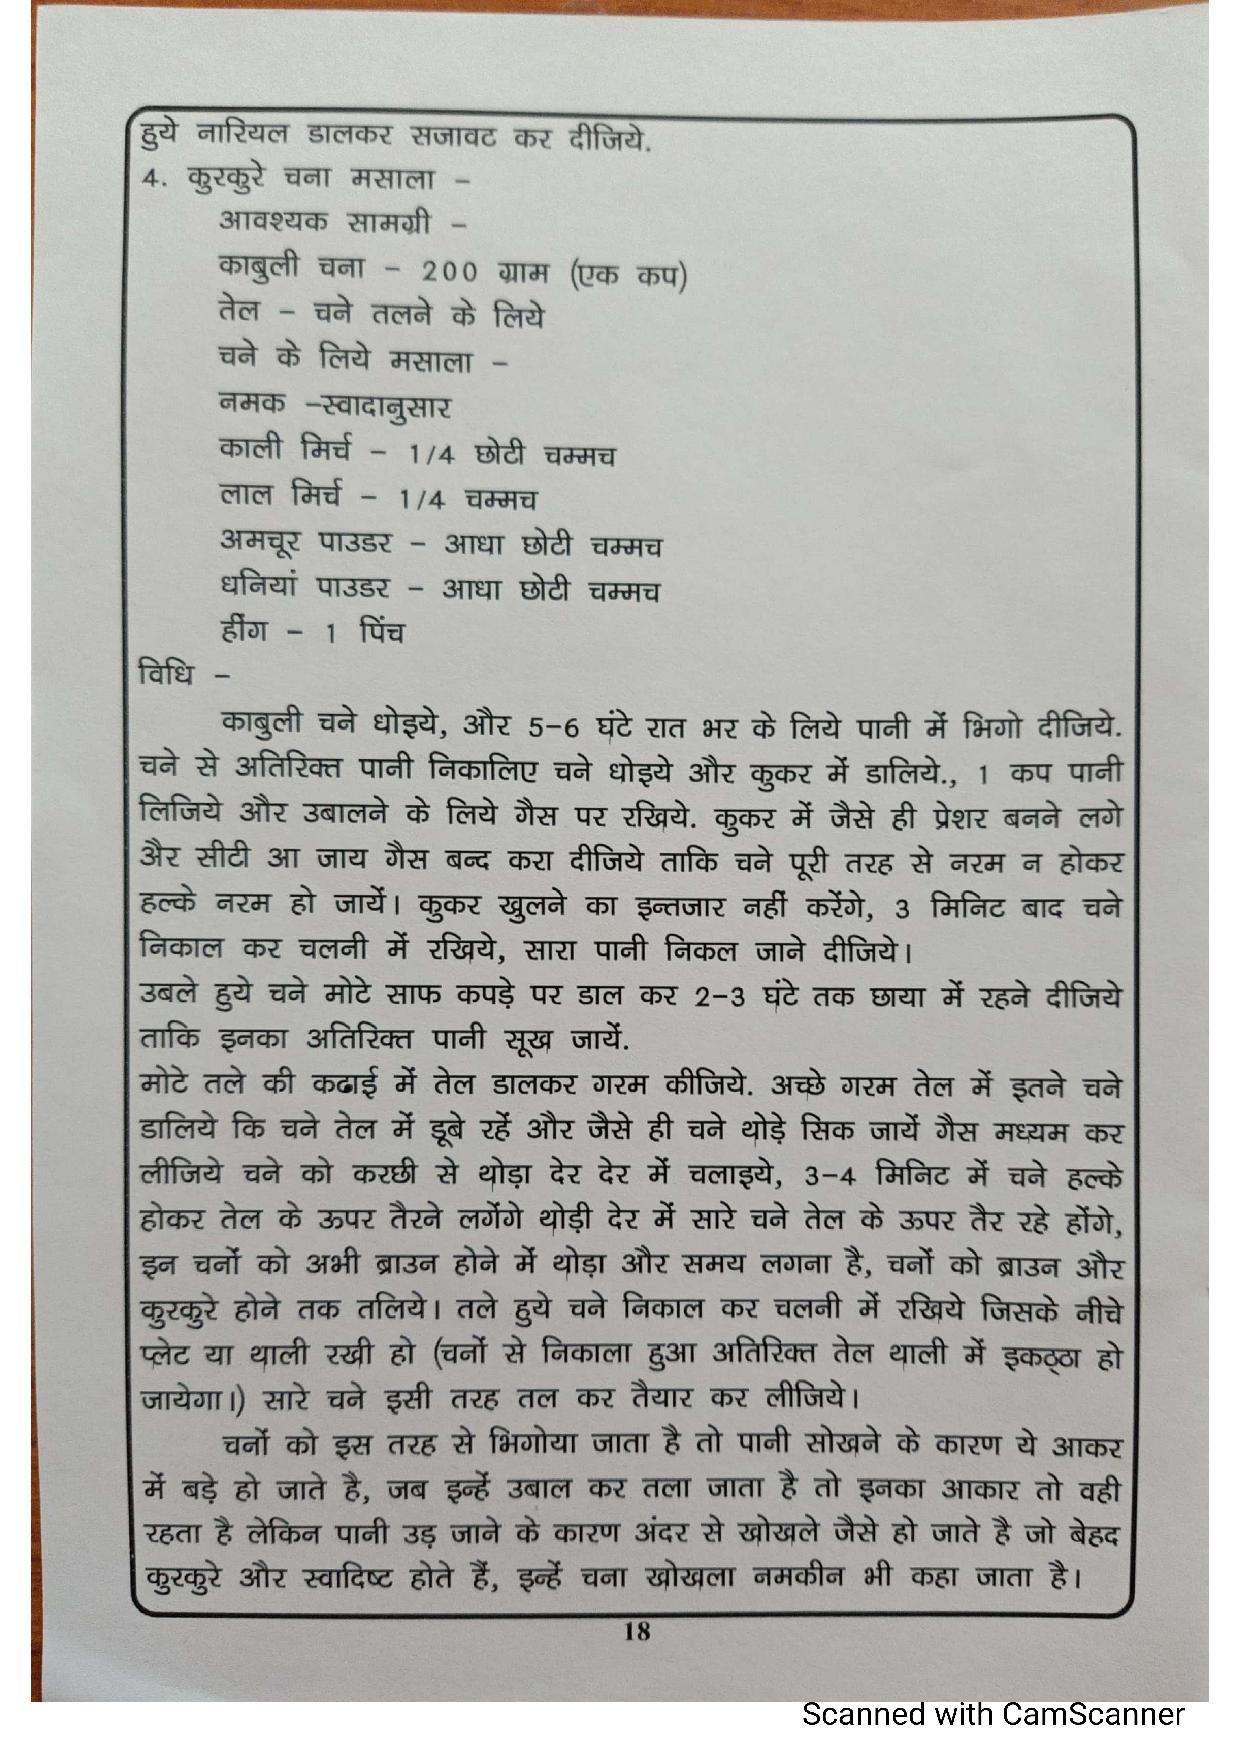 हुये नारियल डालकर सजावट कर दीजिये.
4. कुरकुरे चना मसाला –
आवश्यक सामग्री –
काबुली चना – 200 ग्राम (एक कप)
तेल – चने तलने के लिये
चने के लिये मसाला –
नमक –स्वादानुसार
काली मिर्च – 1/4 छोटी चम्मच
लाल मिर्च – 1/4 चम्मच
अमचूर पाउडर – आधा छोटी चम्मच
धनियां पाउडर – आधा छोटी चम्मच
हींग – 1 पिंच
विधि –
काबुली चने धोइये, और 5–6 घंटे रात भर के लिये पानी में भिगो दीजिये.
चने से अतिरिक्त पानी निकालिए चने धोइये और कुकर में डालिये., 1 कप पानी
लिजिये और उबालने के लिये गैस पर रखिये. कुकर में जैसे ही प्रेशर बनने लगे
अैर सीटी आ जाय गैस बन्द करा दीजिये ताकि चने पूरी तरह से नरम न होकर
हल्के नरम हो जायें। कुकर खुलने का इन्तजार नहीं करेंगे, 3 मिनिट बाद चने
निकाल कर चलनी में रखिये, सारा पानी निकल जाने दीजिये।
उबले हुये चने मोटे साफ कपड़े पर डाल कर 2–3 घंटे तक छाया में रहने दीजिये
ताकि इनका अतिरिक्त पानी सूख जायें.
मोटे तले की कढाई में तेल डालकर गरम कीजिये. अच्छे गरम तेल में इतने चने
डालिये कि चने तेल में डूबे रहें और जैसे ही चने थोड़े सिक जायें गैस मध्यम कर
लीजिये चने को करछी से थोड़ा देर देर में चलाइये, 3–4 मिनिट में चने हल्के
होकर तेल के ऊपर तैरने लगेंगे थोड़ी देर में सारे चने तेल के ऊपर तैर रहे होंगे,
इन चनों को अभी ब्राउन होने में थोड़ा और समय लगना है, चनों को ब्राउन और
कुरकुरे होने तक तलिये। तले हुये चने निकाल कर चलनी में रखिये जिसके नीचे
प्लेट या थाली रखी हो (चनों से निकाला हुआ अतिरिक्त तेल थाली में इकठ्ठा हो
जायेगा।) सारे चने इसी तरह तल कर तैयार कर लीजिये।
चनों को इस तरह से भिगोया जाता है तो पानी सोखने के कारण ये आकर
में बड़े हो जाते है, जब इन्हें उबाल कर तला जाता है तो इनका आकार तो वही
रहता है लेकिन पानी उड़ जाने के कारण अंदर से खोखले जैसे हो जाते है जो बेहद
कुरकुरे और स्वादिष्ट होते हैं, इन्हें चना खोखला नमकीन भी कहा जाता है।
18
Scanned with CamScanner